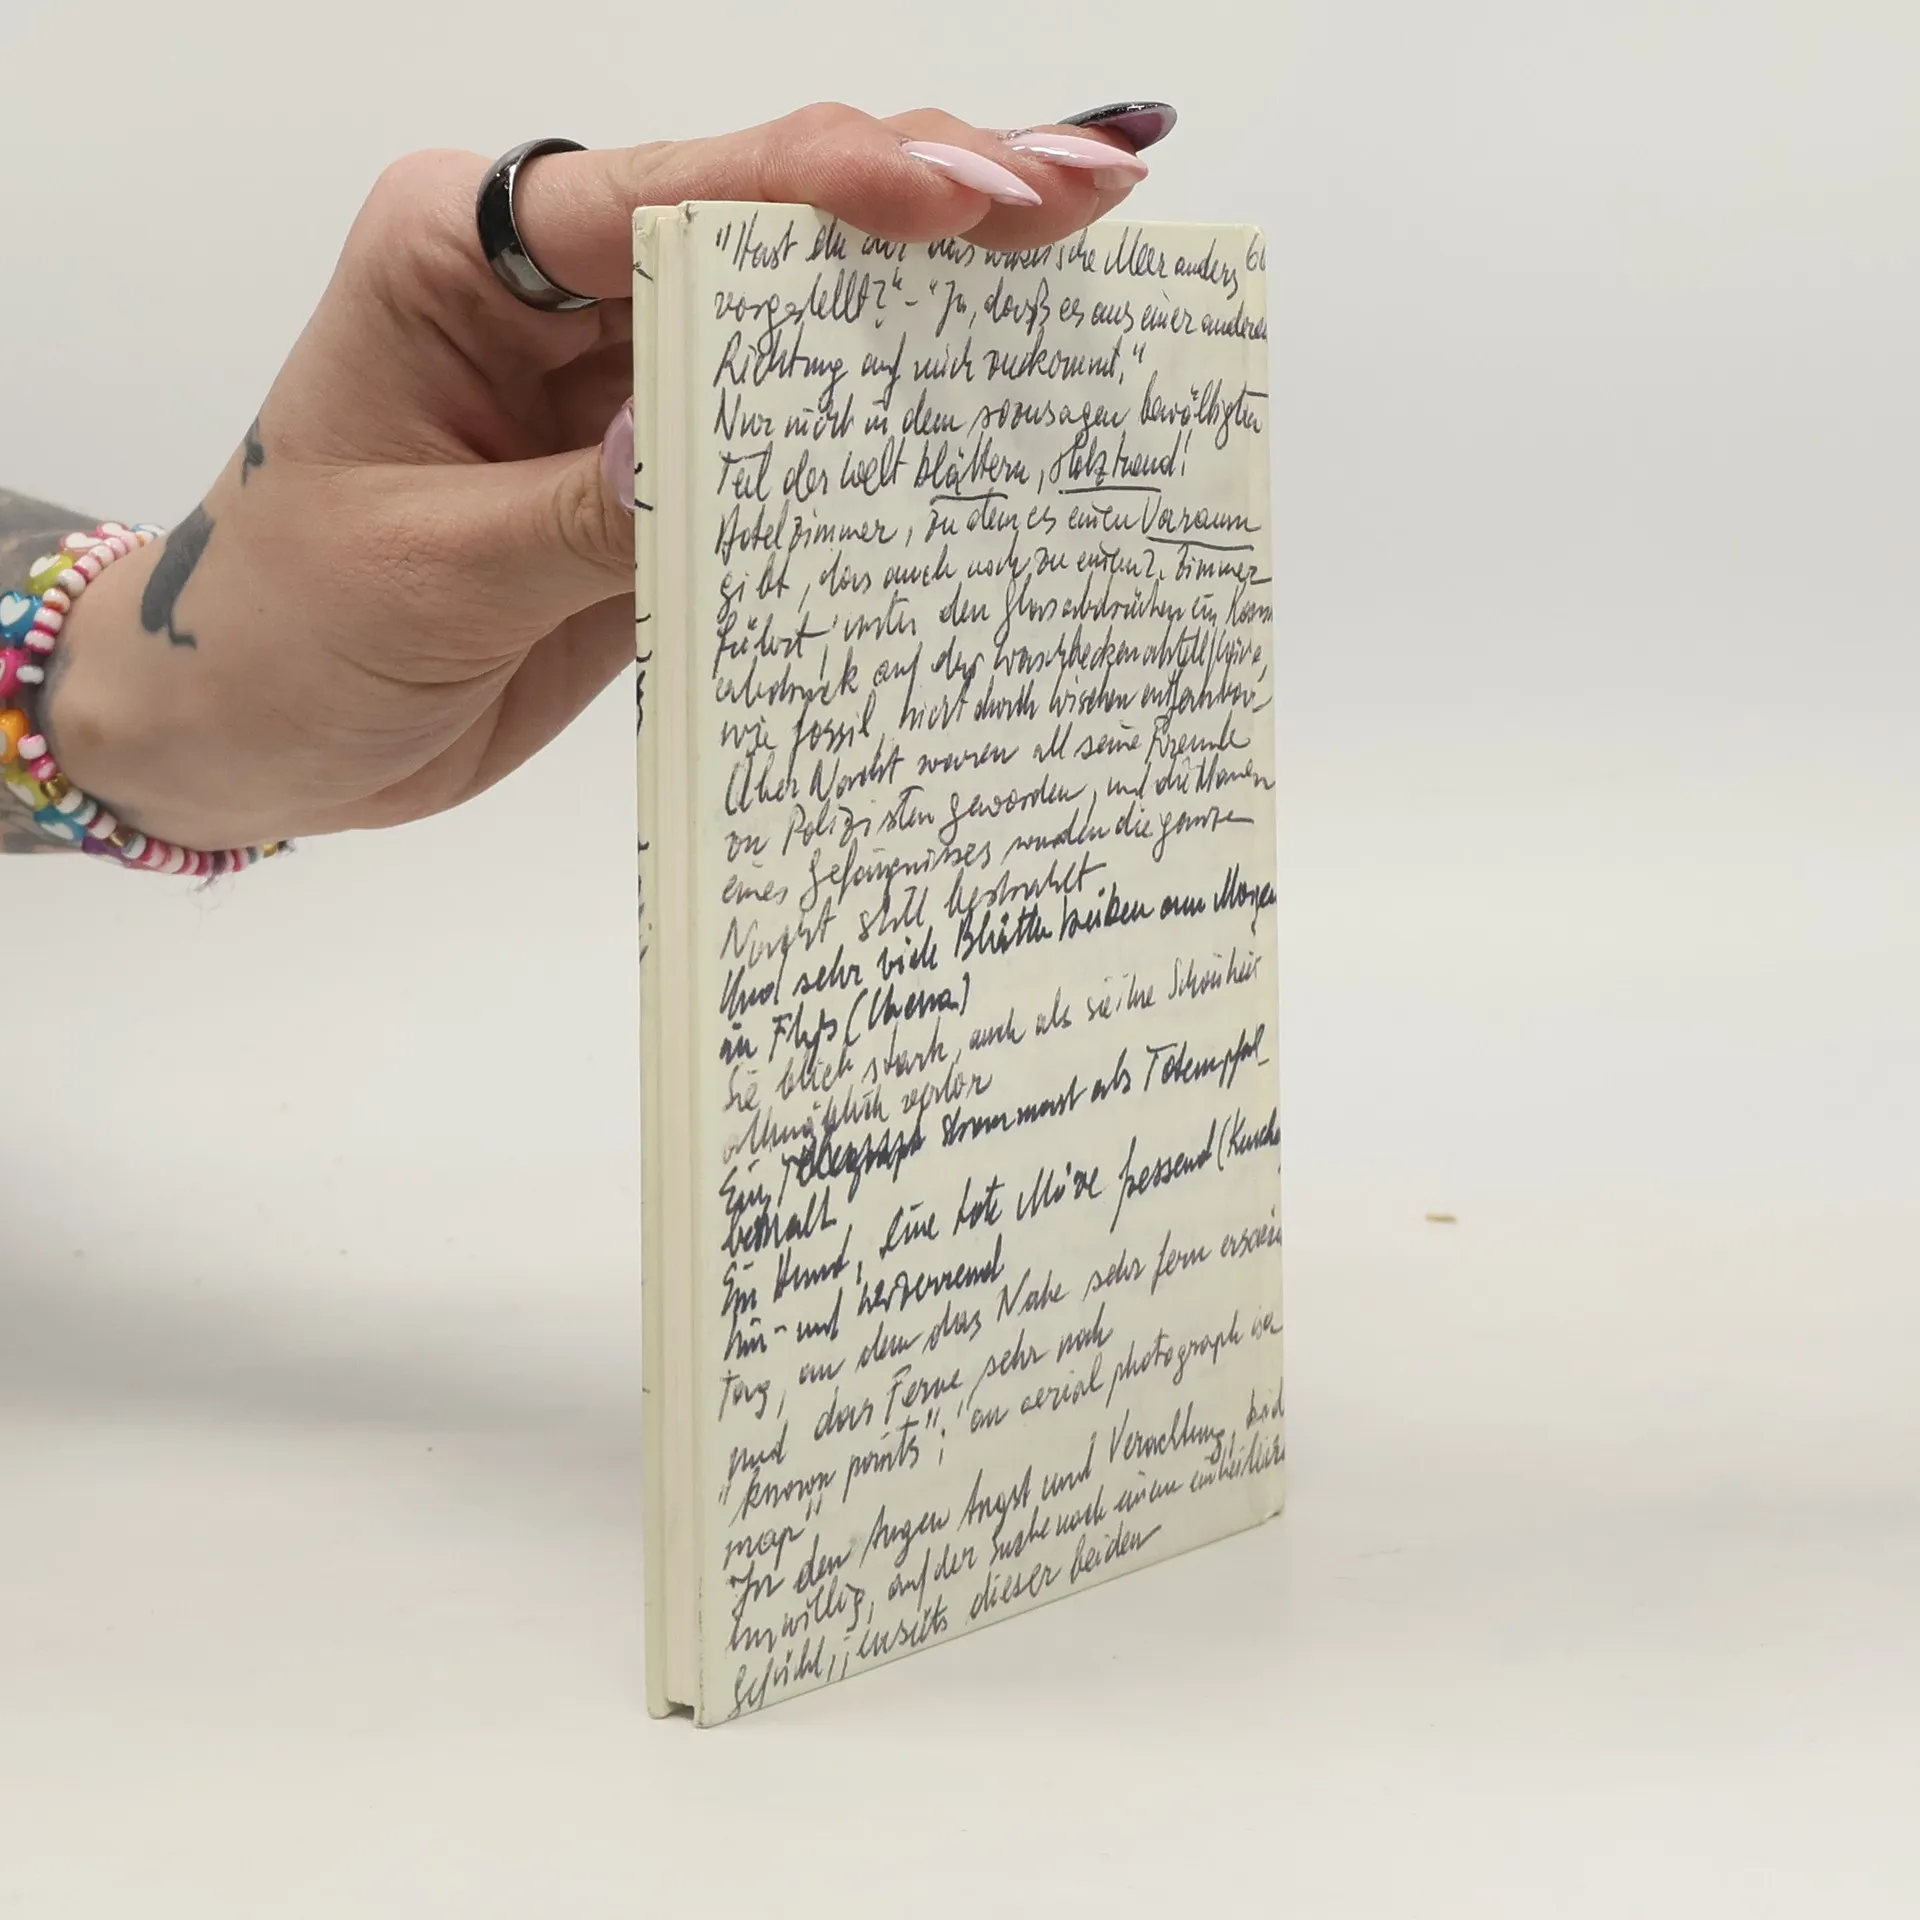 "Hast du dir das arktische Meer anders
vorgestellt?" - "Ja, daß es aus einer anderen
Richtung auf mich zukommt."
Nur nicht in dem sozusagen bewältigten
Teil der Welt blättern, Holztrend!
Hotelzimmer, zu dem es einen Vorraum
gibt, das auch noch zu einem 2. Zimmer
führt, unter den Glasabdrücken ein
abdruck auf der Waschbeckenabstell
wie fossil, nicht durch wischen entfernbar
Über Nacht waren all seine Freunde
zu Polizisten geworden, und die Mauern
eines Gefängnisses wurden die ganze
Nacht still bestrahlt
Und sehr viele Blätter treiben am Morgen
im Fluß
Sie blieb stark, auch als sie ihre Schönheit
allmählich verlor
Ein Telegraph Strommast als Totempfal_
bemalt
Ein Hund, eine tote Möve fressend
hin- und herzerrend
Tag, an dem das Nahe sehr fern
und das Ferne sehr nah
"known points"; "an aerial photograph is a
map"
In den Augen Angst und Verachtung,
unwillig, auf der Suche nach einem
Gefühl, jenseits dieser beiden